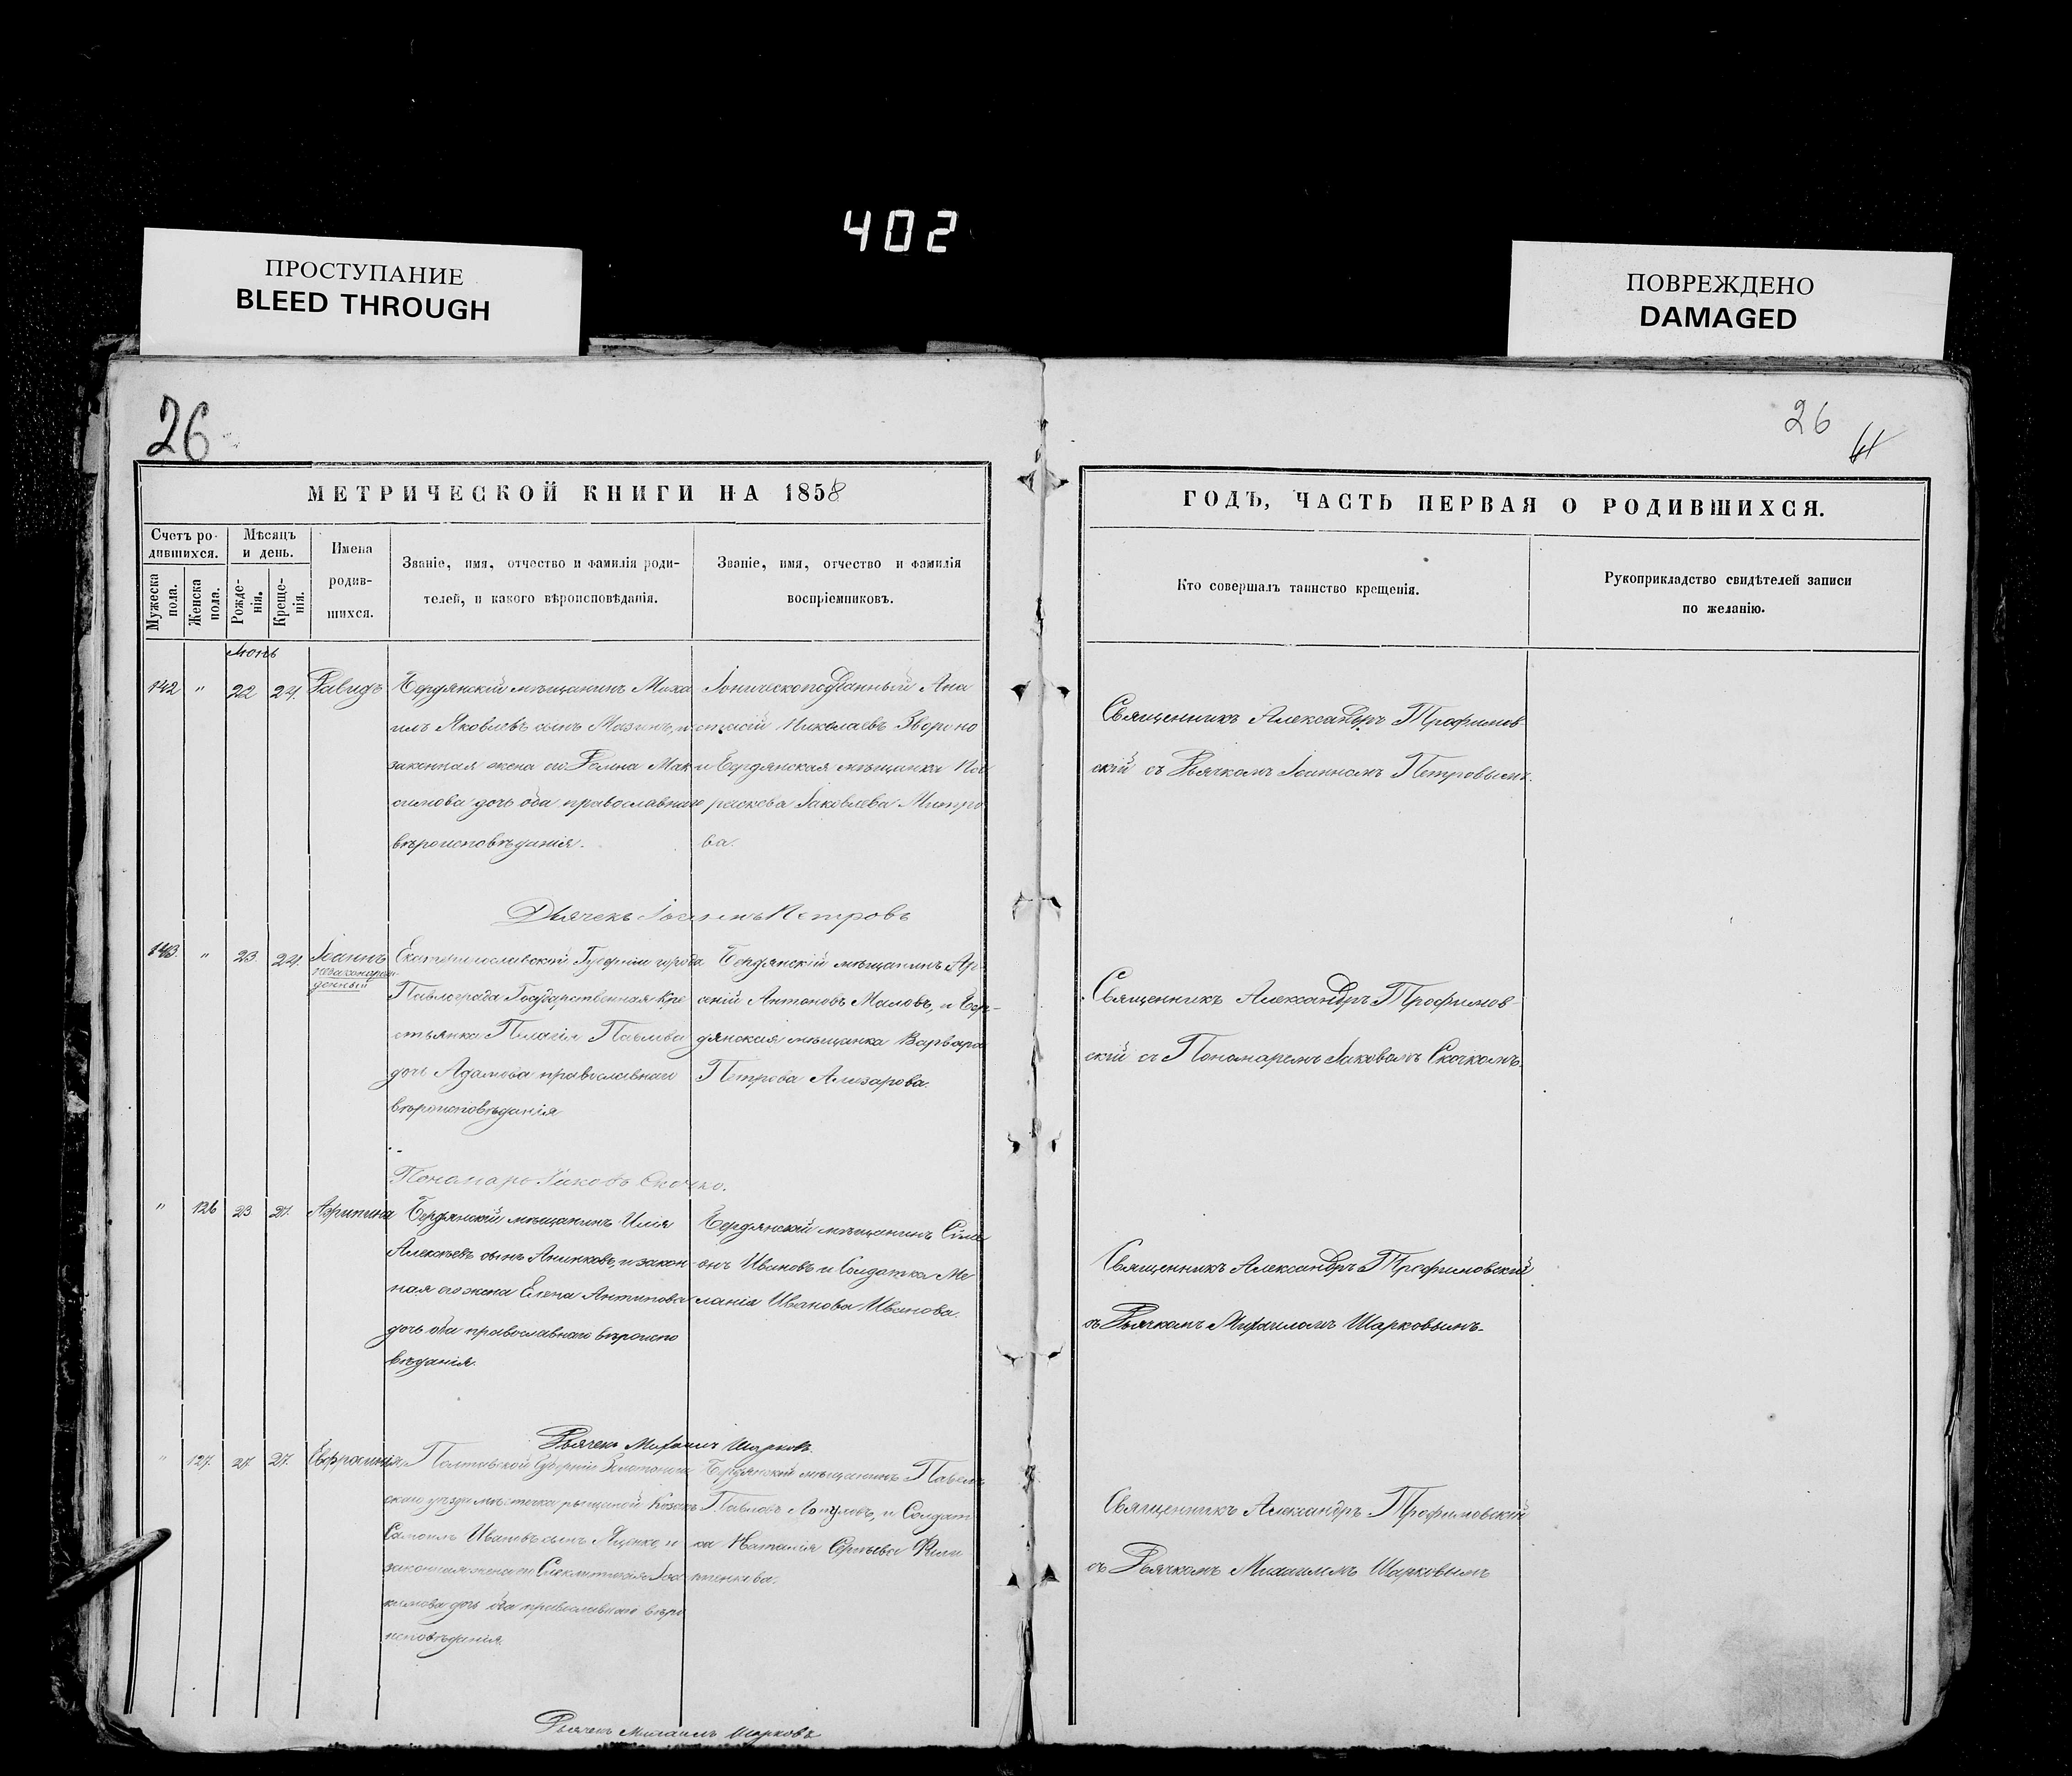 402
ПРОСТУПАНИЕ
BLEED THROUGH
ПОВРЕЖДЕНО
DAMAGED
26
26
МЕТРИЧЕСКОЙ КНИГИ НА 1858
ГОДЪ, ЧАСТЬ ПЕРВАЯ О РОДИВШИХСЯ.
Счетъ ро-
дившихся.
Мужеска пола.
Женска пола.
Мѣсяцъ
и день.
Рожде-
нія.
Креще-
нія.
Имена
родив-
шихся.
Званіе, имя, отчество и фамилія роди-
телей, и какого вѣроисповѣданія.
Званіе, имя, отчество и фамилія
воспріемниковъ.
Кто совершалъ таинство крещенія.
Рукоприкладство свидѣтелей записи
по желанію.
142 " 22 24. Давидъ
Бердянскій мѣщанинъ Миха
илъ Яковлевъ сынъ Мазинъ, и
законная жена его Мак
симова дочь оба православнаго
вѣроисповѣданія.
Іоническоподданный Ана
стасій Николаевъ
и Бердянская мѣщанка Па
раскева Іаковлева Митро
ва.
Священникъ Александръ Трофимов-
скій съ Дьячкомъ Іоанномъ Петровымъ.
Дьячекъ Іоаннъ Петровъ
143. " 23. 24. Іоаннъ
незаконорож-
денный
Екатеринославской Губерніи города
Павлограда Государственная Кре
стьянка Пелагія Павлова
дочь Адамова православнаго
вѣроисповѣданія
Бердянскій мѣщанинъ Ар-
сеній Антоновъ Маловъ, и Бер-
дянская мѣщанка Варвара
Петрова Ализарова.
Священникъ Александръ Трофимов-
скій съ Пономаремъ Іаковомъ Скочкомъ.
Пономарь Іаковъ Скочко.
" 126 23 27. Агрипина
Бердянскій мѣщанинъ Илія
Алексѣевъ сынъ Аниковъ, и закон-
ная его жена Елена Антипова
дочь оба православнаго вѣроиспо
вѣданія.
Бердянскій мѣщанинъ Симе
онъ Ивановъ и Солдатка Ме
ланія Иванова Иванова.
Священникъ Александръ Трофимовскій
съ Дьячкомъ Михаиломъ Шарковымъ.
Дьячекъ Михаилъ Шарковъ.
" 127. 27. 27. Евфросинія
Полтавской Губерніи Золотонош
скаго уѣзда мѣстечка Козакъ
Самоилъ Ивановъ сынъ Яценко, и
законная жена его Іоа
кимова дочь оба православнаго вѣро
исповѣданія.
Бердянскій мѣщанинъ Павелъ
Павловъ и Солдат
ка Наталія Сергѣева Фили
пенкова.
Священникъ Александръ Трофимовскій
съ Дьячкомъ Михаиломъ Шарковымъ
Дьячекъ Михаилъ Шарковъ